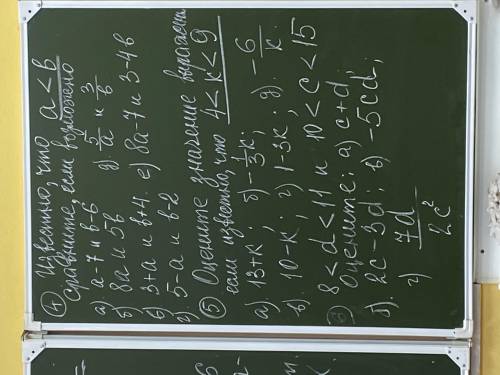 ④ Известно, что a < b
Сравните, если возможно
а) a-7 и b-6 д) 3/a и 3/b
б) 8a и 5b
в) 3+a и b+4. е) 8a-7 и 3-4b
г) 5-a и b-2
⑤ Оцените значение выражения
если известно, что 4 < k < 9
а) 13+k; б) -1/3 k; д) -6/k.
в) 10-k; г) 1-3k;
③ 8 < d < 11 и 10 < c < 15
Оцените; а) c+d;
б) 2c-3d; в) -5cd;
г) 7d/2c²